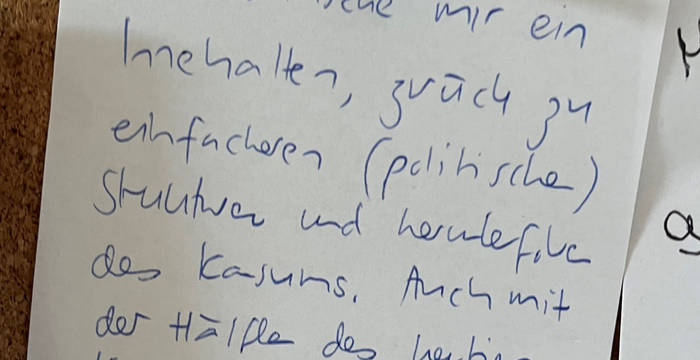 mir ein
Innehalten, zurück zu
einfacheren (politische)
Strukturen und
des Kosums. Auch mit
der Hälfte des